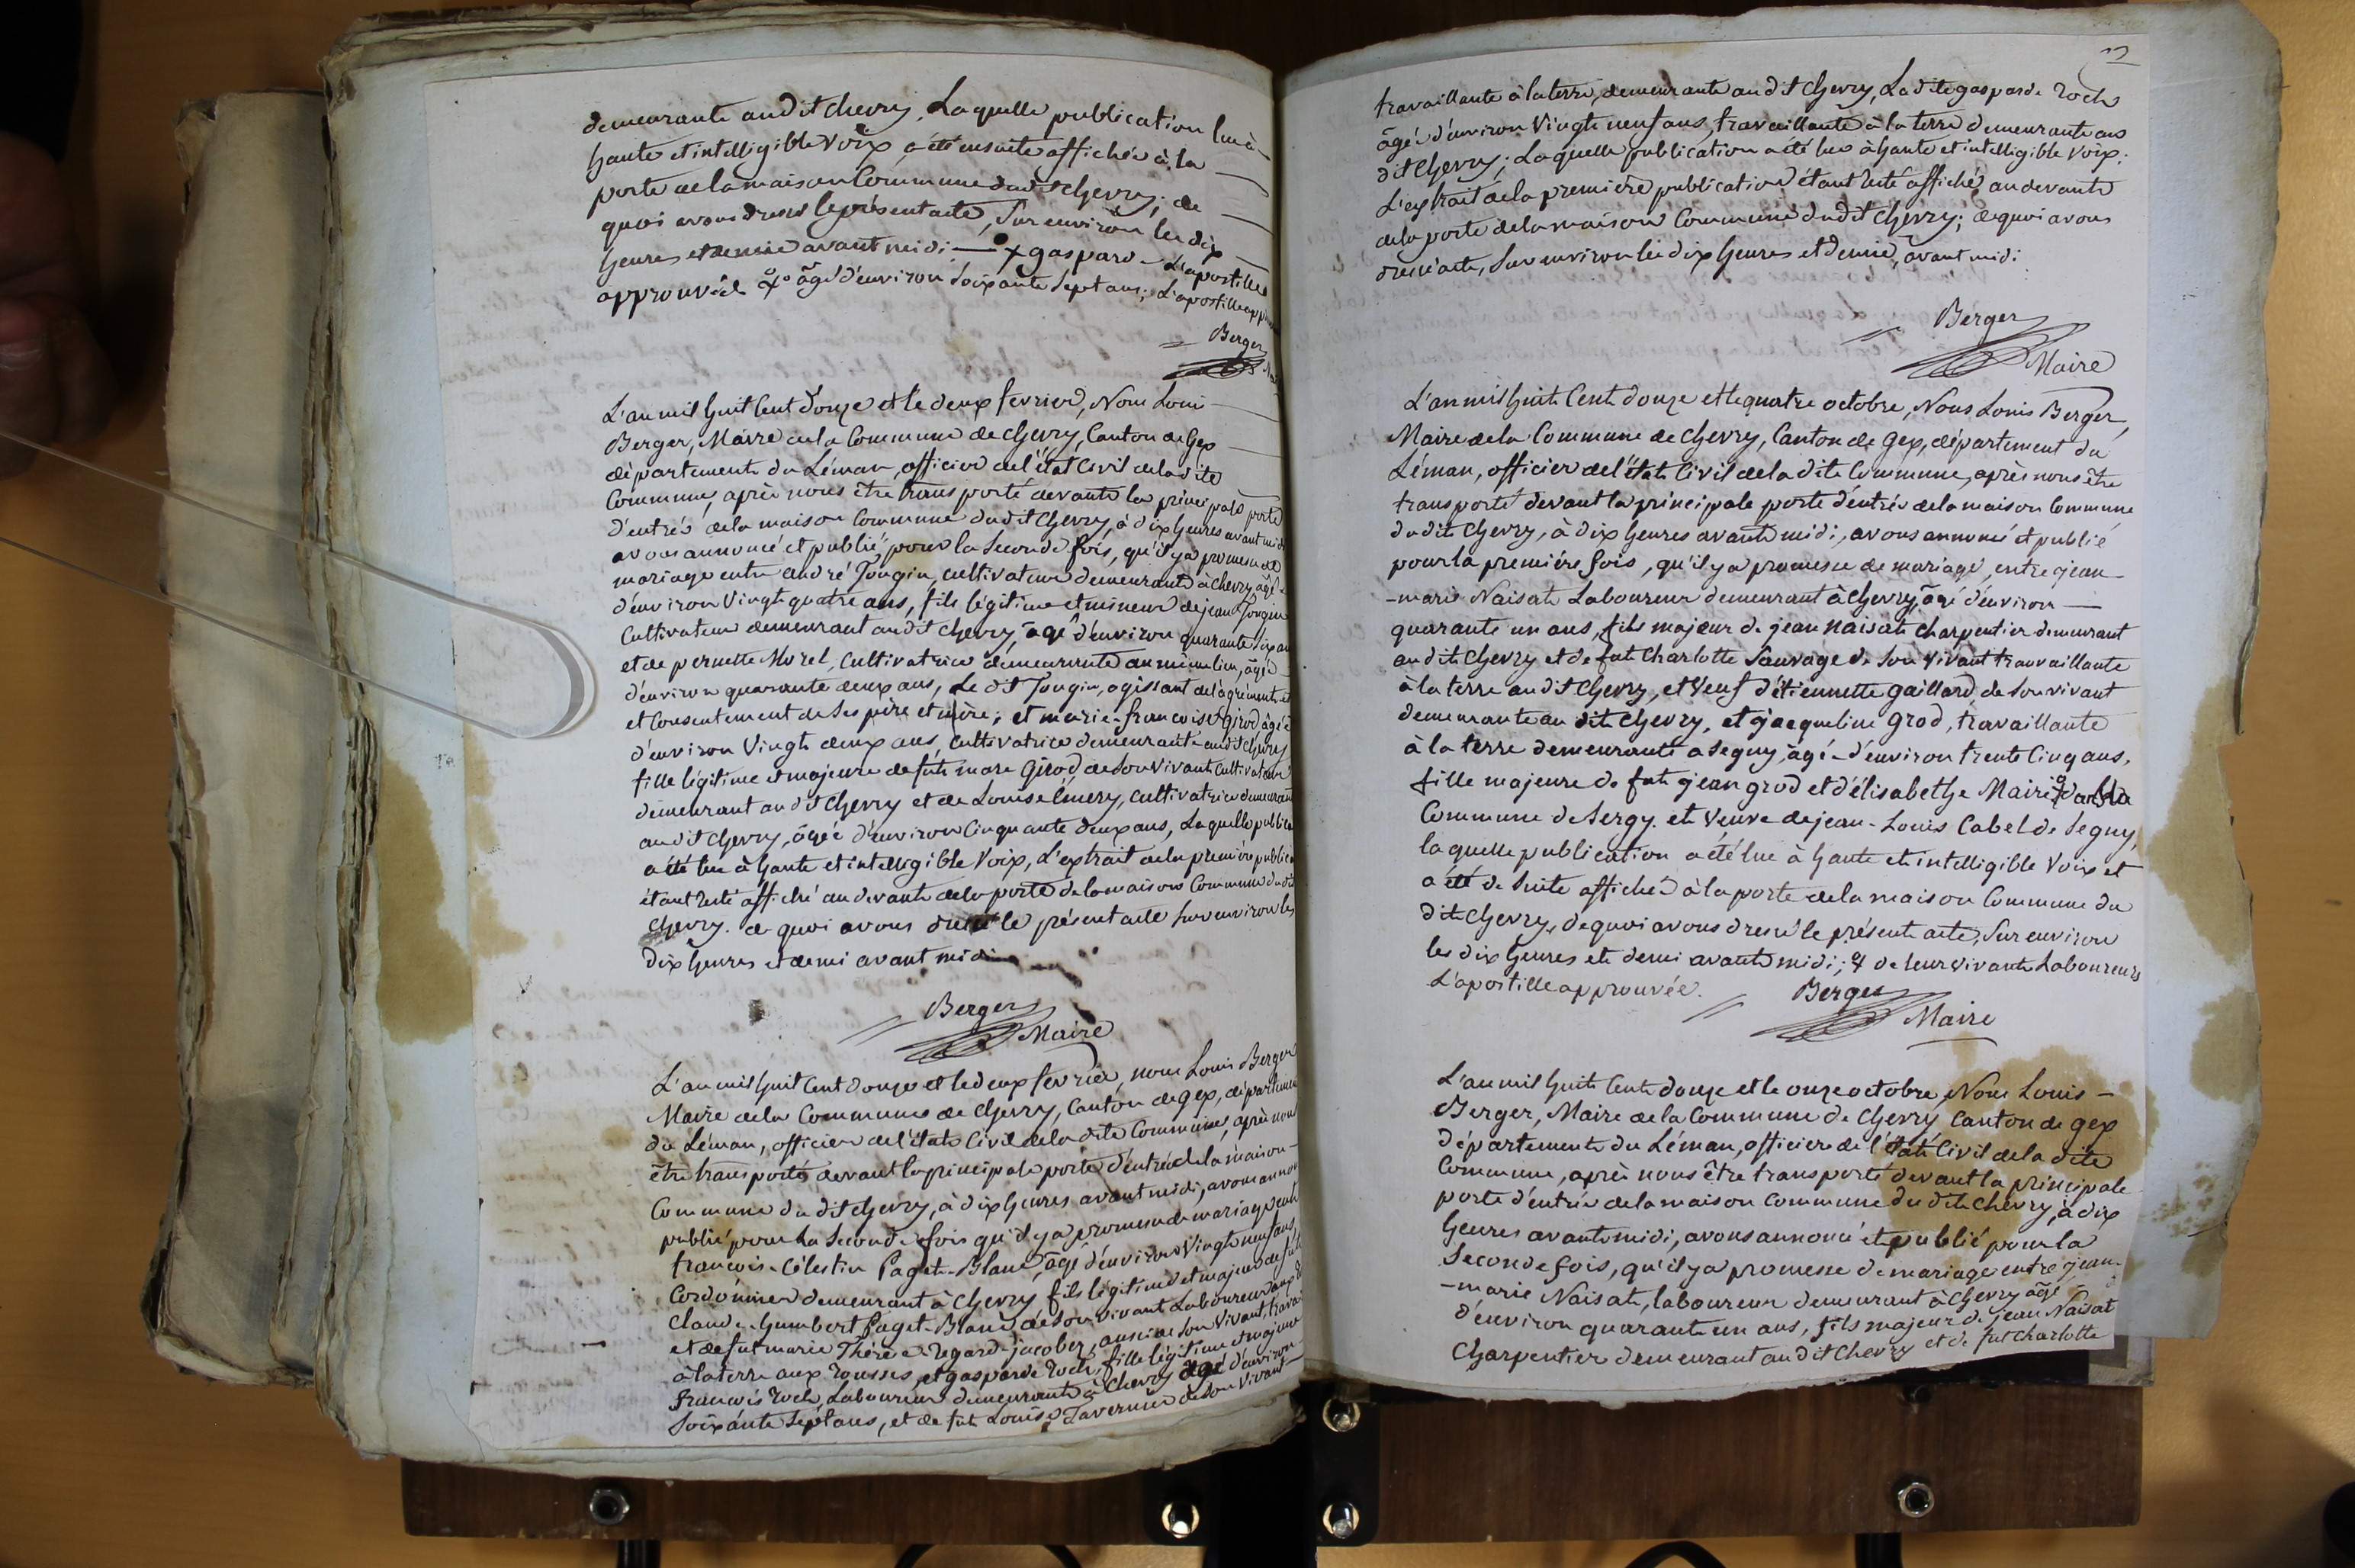 demeurante au dit Chevry, Laquelle publication lue à
haute et intelligible voix, a été ensuite affichée à la
porte de la maison Commune du dit Chevry; de
quoi avons dressé le présent acte, sur environ les dix
heures et demie avant midi — gaspard L'apostille
approuvée âgé d'environ soixante sept ans; L'apostille
Berger
L'an mil huit Cent Douze et le deux fevrier, Nous Louis
Berger, Maire de la Commune de Chevry, Canton de Gex
département du Léman, officier de l'état Civil de la dite
Commune, après nous être transporté devant la principale porte
d'entrée de la maison Commune du dit Chevry, à dix heures avant midi
avons annoncé et publié, pour la seconde fois, qu'il y a promesse de
mariage entre andré Jougin, cultivateur demeurant à chevry, âgé
d'environ Vingt quatre ans, fils légitime et mineur de jean Jougin
Cultivateur demeurant au dit Chevry, âgé d'environ quarante six ans
et de pernette Morel, Cultivatrice demeurante au même lieu, âgée
d'environ quarante deux ans, Le dit Jougin, agissant de l'agrément et
et Consentement de Ses père et mère; et marie-francoise Girod âgée
d'environ Vingt deux ans, Cultivatrice demeurante au dit Chevry
fille légitime et majeure de fut marc Girod de Son Vivant Cultivateur
demeurant au dit Chevry et de Louise Emery, Cultivatrice demeurant
au dit Chevry, âgée d'environ Cinquante deux ans, Laquelle
a été lue à haute et intelligible Voix, L'extrait de la première
étant resté affiché au devant de la porte de la maison Commune du dit
Chevry. de quoi avons dressé le présent acte sur environ les
Dix heures et demi avant midi
Berger
Maire
L'an mil huit Cent Douze et le deux fevrier, nous Louis Berger
Maire de la Commune de Chevry, Canton de Gex, département
du Léman, officier de l'état Civil de la dite Commune, après nous
être transporté devant la principale porte d'entrée de la maison
Commune du dit Chevry, à dix heures avant midi, avons
publié pour la Seconde fois qu'il y a promesse de mariage
francois-Célestin Paget-Blanc, âgé d'environ Vingt neuf ans,
Cordonnier demeurant à Chevry fils légitime et majeur de fut
Claude-humbert Paget-Blanc de son vivant Laboureur
et de fut marie Thérèse Regard-jacobez, aussi de son Vivant,
à la terre aux rousses, et gasparde Roch, fille légitime et majeure
françois Roch, Laboureur demeurante à Chevry âgé d'environ
Soixante Sept ans, et de fut Louise Tavernier de Son Vivant
travaillante à la terre, demeurante au dit Chevry, La dite gasparde Roch
âgé d'environ Vingt neuf ans, travaillante à la terre demeurante au
dit Chevry; Laquelle publication a été lue à haute et intelligible voix;
L'extrait de la première publication étant resté affiché au devant
de la porte de la maison Commune du dit Chevry; de quoi avons
dressé acte, Sur environ les dix heures et demie, avant midi
Berger
Maire
L'an mil huit Cent douze et le quatre octobre, Nous Louis Berger,
Maire de la Commune de Chevry, Canton de Gex, département du
Léman, officier de l'état Civil de la dite Commune, après nous être
transporté devant la principale porte d'entrée de la maison Commune
du dit Chevry, à dix heures avant midi, avons annoncé et publié
pour la première fois, qu'il y a promesse de mariage, entre jean-
-marie Naisat Laboureur demeurant à Chevry, âgé d'environ —
quarante un ans, fils majeur de jean Naisat Charpentier demeurant
au dit Chevry et de fut Charlotte Sauvage de Son Vivant travaillante
à la terre au dit Chevry, et Veuf d'étiennette gaillard, de Son vivant
demeurante au dit Chevry, et jacqueline grod, travaillante
à la terre demeurante a Segny, âgée d'environ trente Cinq ans,
fille majeure de fut jean grod et d'élisabethe Mairie de la
Commune de Sergy et Veuve de jean-Louis Cabel de Segny,
laquelle publication a été lue à haute et intelligible Voix et
a été de Suite affichée à la porte de la maison Commune du
dit Chevry, de quoi avons dressé le présent acte, Sur environ
les dix heures et demi avant midi; de leur vivant Laboureurs
L'apostille approuvée.
Berger
Maire
L'an mil huit Cent douze et le onze octobre Nous Louis —
Berger, Maire de la Commune de Chevry Canton de gex
département du Léman, officier de l'état Civil de la dite
Commune, après nous être transporté devant la principale
porte d'entrée de la maison Commune du dit Chevry, à dix
heures avant midi, avons annoncé et publié pour la
Seconde fois, qu'il y a promesse de mariage entre jean-
-marie Naisat, laboureur demeurant à Chevry âgé
d'environ quarante un ans, fils majeur de jean Naisat
Charpentier demeurant au dit Chevry et de fut Charlotte